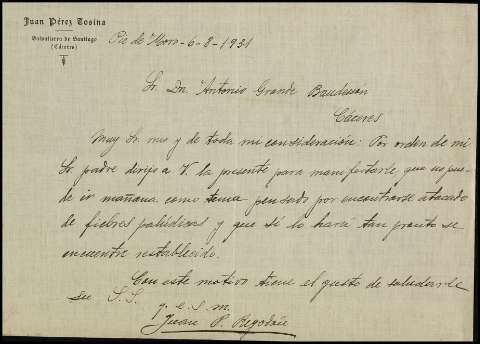 Juan Pérez Tosina
Salvatierra de Santiago
(Cáceres)
Pie de Horo-6-8-1931
Sr. Dn. Antonio Grande Baudesson
Cáceres
Muy Sr. mio y de toda mi consideración: Por orden de mi
Sr. padre dirijo a V. la presente para manifestarle, que no pue-
de ir mañana como tenia pensado por encontrarse atacado
de fiebres palúdicas y que si lo hará tan pronto se
encuentre restablecido.
Con este motivo tiene el gusto de saludarle
su S.S.
q. e. s. m.
Juan P. Regodón